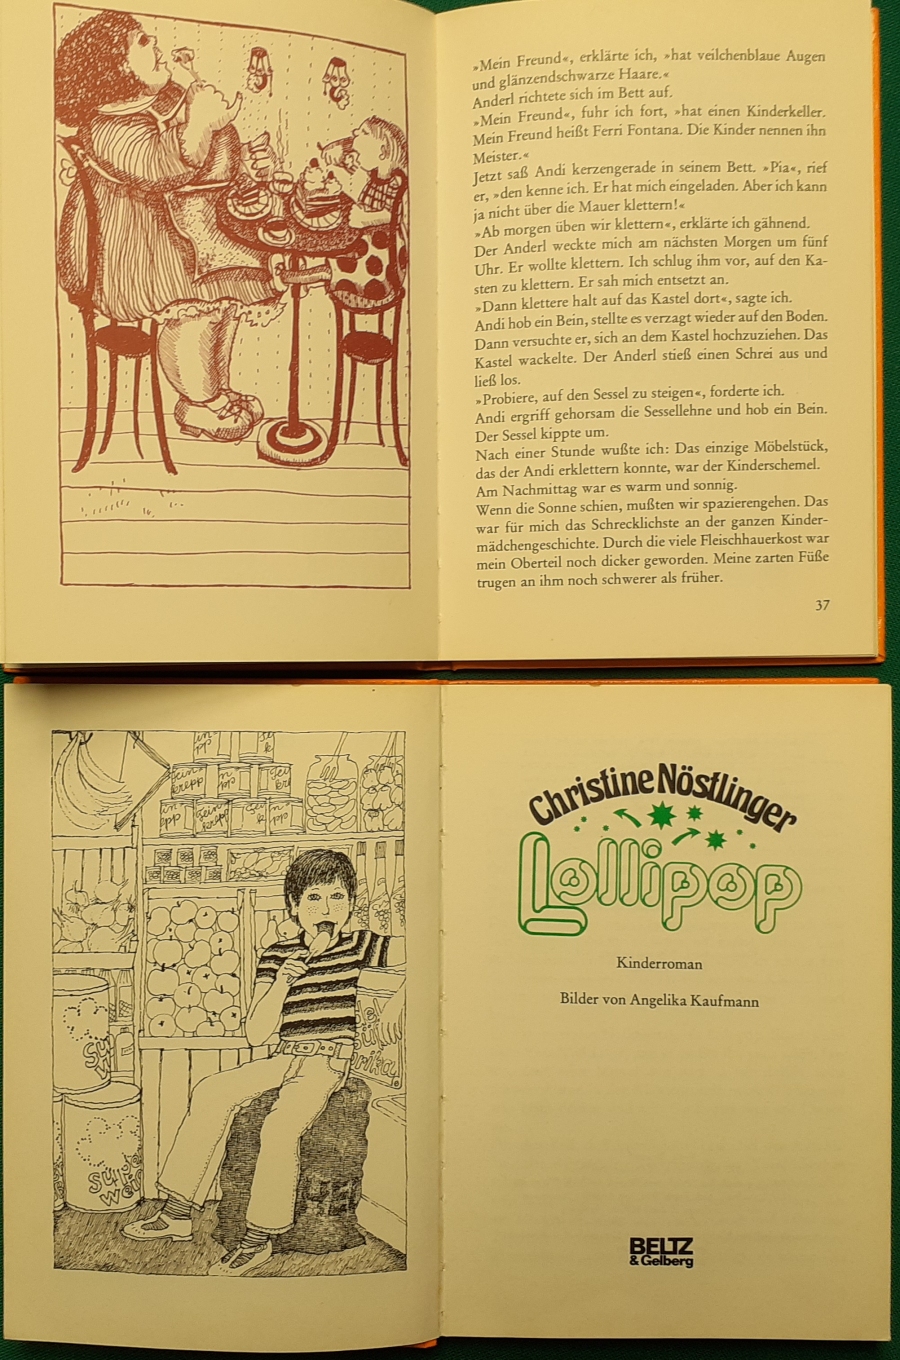 »Mein Freund«, erklärte ich, »hat veilchenblaue Augen
und glänzendschwarze Haare.«
Anderl richtete sich im Bett auf.
»Mein Freund«, fuhr ich fort, »hat einen Kinderkeller.
Mein Freund heißt Ferri Fontana. Die Kinder nennen ihn
Meister.«
Jetzt saß Andi kerzengerade in seinem Bett. »Pia«, rief
er, »den kenne ich. Er hat mich eingeladen. Aber ich kann
ja nicht über die Mauer klettern!«
»Ab morgen üben wir klettern«, erklärte ich gähnend.
Der Anderl weckte mich am nächsten Morgen um fünf
Uhr. Er wollte klettern. Ich schlug ihm vor, auf den Ka-
sten zu klettern. Er sah mich entsetzt an.
»Dann klettere halt auf das Kastel dort«, sagte ich.
Andi hob ein Bein, stellte es verzagt wieder auf den Boden.
Dann versuchte er, sich an dem Kastel hochzuziehen. Das
Kastel wackelte. Der Anderl stieß einen Schrei aus und
ließ los.
»Probiere, auf den Sessel zu steigen«, forderte ich.
Andi ergriff gehorsam die Sessellehne und hob ein Bein.
Der Sessel kippte um.
Nach einer Stunde wußte ich: Das einzige Möbelstück,
das der Andi erklettern konnte, war der Kinderschemel.
Am Nachmittag war es warm und sonnig.
Wenn die Sonne schien, mußten wir spazierengehen. Das
war für mich das Schrecklichste an der ganzen Kinder-
mädchengeschichte. Durch die viele Fleischhauerkost war
mein Oberteil noch dicker geworden. Meine zarten Füße
trugen an ihm noch schwerer als früher.
37
Christine Nöstlinger
Lollipop
Kinderroman
Bilder von Angelika Kaufmann
BELTZ
& Gelberg